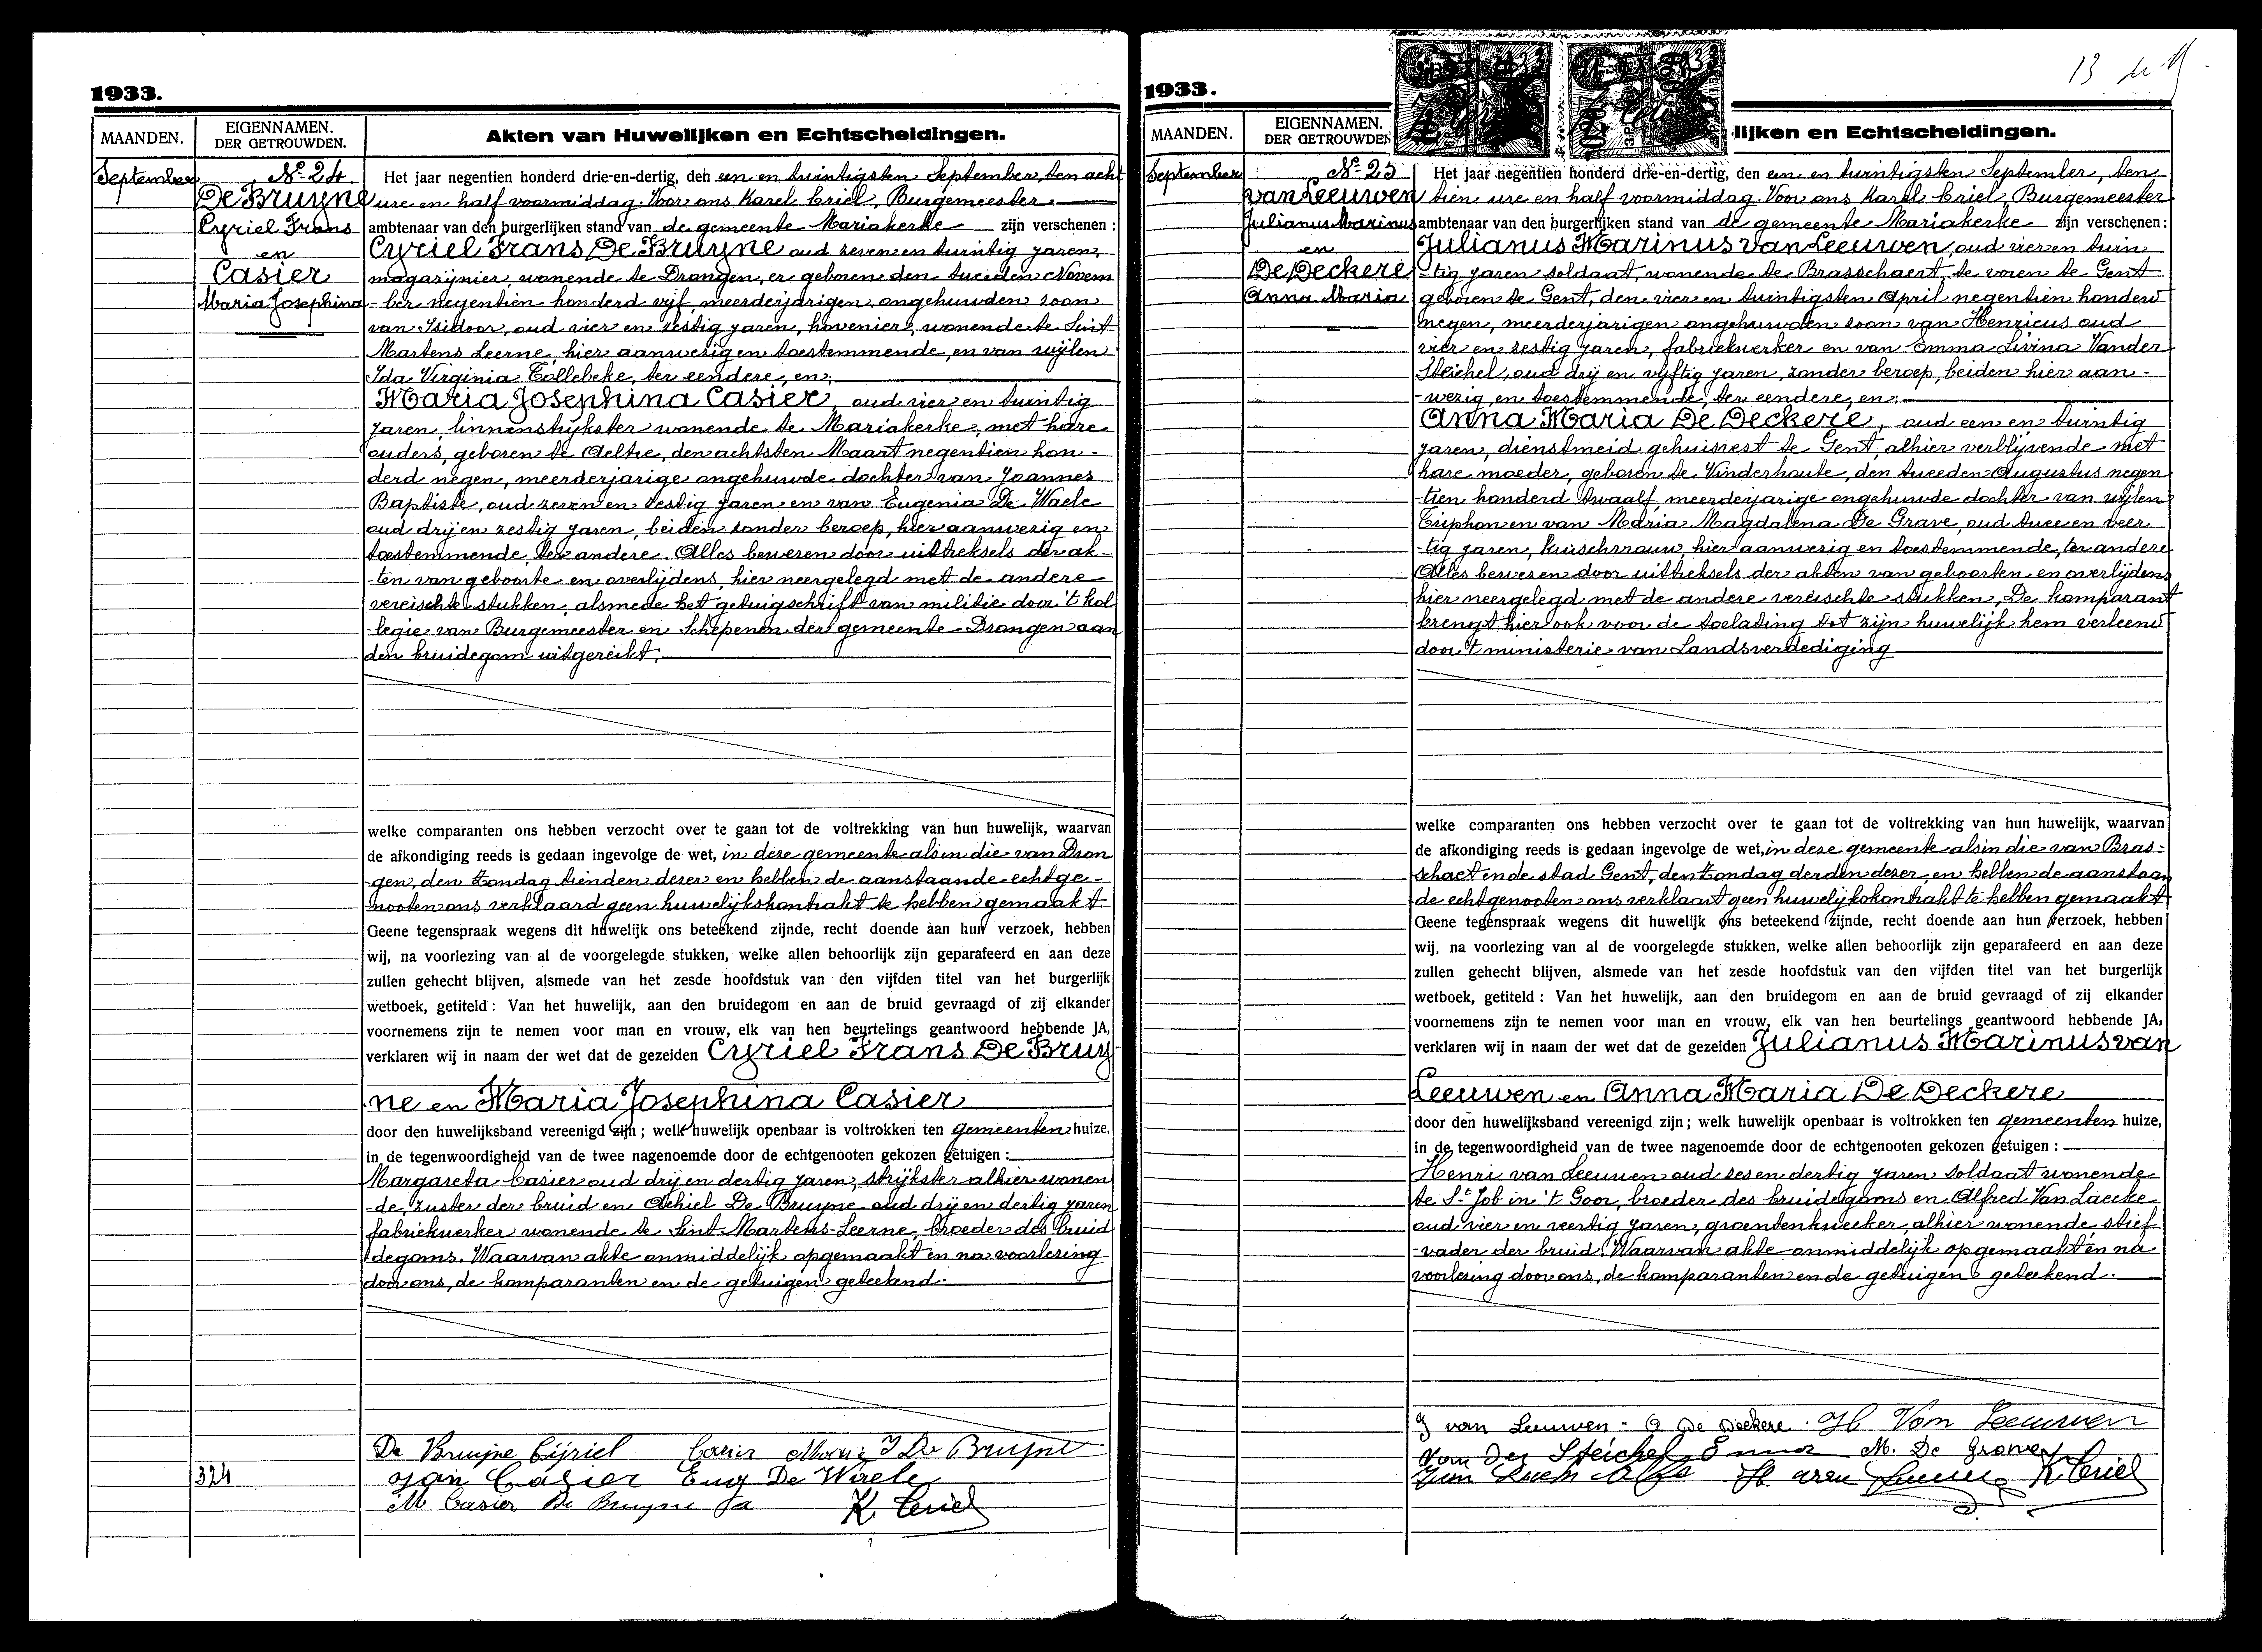 1933.
MAANDEN.
EIGENNAMEN.
DER GETROUWDEN.
Akten van Huwelijken en Echtscheidingen.
September
No. 24
De Bruyne
Cyriel Frans
en
Casier
Maria Josephina
Het jaar negentien honderd drie-en-dertig, den een en twintigsten September, ten acht
ure en half voormiddag. Voor ons Karel Criel, Burgemeester
ambtenaar van den burgerlijken stand van de gemeente Mariakerke zijn verschenen :
Cyriel Frans De Bruyne oud zeven en twintig jaren,
magazijnier, wonende te Drongen, er geboren den tweeden Novem
-ber negentien honderd vijf, meerderjarigen, ongehuwden zoon
van Isidoor, oud vier en zestig jaren, hovenier, wonende te Sint
Martens Leerne, hier aanwezig en toestemmende, en van wijlen
Ida Virginia Collebeke, ter eendere, en:
Maria Josephina Casier, oud vier en twintig
jaren, linnenstrijkster wonende te Mariakerke, met hare
ouders, geboren te Aeltre, den achtsten Maart negentien hon-
derd negen, meerderjarige ongehuwde dochter van Joannes
Baptiste, oud zeven en zestig jaren en van Eugenia De Waele
oud drij en zestig jaren, beiden zonder beroep, hier aanwezig en
toestemmende, ter andere. Alles bewezen door uittreksels der ak-
-ten van geboorte en overlijdens, hier neergelegd met de andere
vereischte stukken, alsmede het getuigschrift van militie door 't kol
-legie van Burgemeester en Schepenen der gemeente Drongen aan
den bruidegom uitgereikt.
welke comparanten ons hebben verzocht over te gaan tot de voltrekking van hun huwelijk, waarvan
de afkondiging reeds is gedaan ingevolge de wet, in deze gemeente als in die van Dron
-gen, den Zondag tienden dezer en hebben de aanstaande echtge-
-nooten ons verklaard geen huwelijkskontrakt te hebben gemaakt
Geene tegenspraak wegens dit huwelijk ons beteekend zijnde, recht doende aan hun verzoek, hebben
wij, na voorlezing van al de voorgelegde stukken, welke allen behoorlijk zijn geparafeerd en aan deze
zullen gehecht blijven, alsmede van het zesde hoofdstuk van den vijfden titel van het burgerlijk
wetboek, getiteld : Van het huwelijk, aan den bruidegom en aan de bruid gevraagd of zij elkander
voornemens zijn te nemen voor man en vrouw, elk van hen beurtelings geantwoord hebbende JA,
verklaren wij in naam der wet dat de gezeiden Cyriel Frans De Bruy-
ne en Maria Josephina Casier
door den huwelijksband vereenigd zijn ; welk huwelijk openbaar is voltrokken ten gemeenten huize,
in de tegenwoordigheid van de twee nagenoemde door de echtgenooten gekozen getuigen :
Margareta Casier oud drij en dertig jaren, strijkster alhier wonen
-de, zuster der bruid en Achiel De Bruyne oud drij en dertig jaren
fabriekwerker wonende te Sint Martens-Leerne, broeder des bruid
degoms. Waarvan akte onmiddelijk opgemaakt en na voorlezing
door ons, de komparanten en de getuigen geteekend.
De Bruijne Cijriel Casier Maria I De Bruyne
Jan Casier Eug De Waele
M Casier De Bruyne K. Criel
324
1933.
13
MAANDEN.
EIGENNAMEN.
DER GETROUWDEN
lijken en Echtscheidingen.
September
No. 25
van Leeuwen
Julianus Marinus
en
De Deckere
Anna Maria
Het jaar negentien honderd drie-en-dertig, den een en twintigsten September, ten
tien ure en half voormiddag. Voor ons Karel Criel, Burgemeester
ambtenaar van den burgerlijken stand van de gemeente Mariakerke zijn verschenen :
Julianus Marinus van Leeuwen, oud vier en twin
-tig jaren soldaat, wonende te Brasschaert, te voren te Gent
geboren te Gent, den vier en twintigsten April negentien honderd
negen, meerderjarigen ongehuwden zoon van Henricus oud
vier en zestig jaren, fabriekwerker en van Emma Livina Vander
Steichel, oud drij en vijftig jaren, zonder beroep, beiden hier aan-
-wezig en toestemmende, ter eendere, en:
Anna Maria De Deckere, oud een en twintig
jaren, dienstmeid gehuisvest te Gent, alhier verblijvende met
hare moeder, geboren te Vinderhoute, den tweeden Augustus negen
-tien honderd twaalf, meerderjarige ongehuwde dochter van wijlen
Triphon en van Maria Magdalena De Grave, oud twee en veer
-tig jaren, kuischvrouw, hier aanwezig en toestemmende, ter andere
Alles bewezen door uittreksels der akten van geboorten en overlijdens
hier neergelegd met de andere vereischte stukken, De komparant
brengt hier ook voor de toelating tot zijn huwelijk hem verleend
door 't ministerie van Landsverdediging
welke comparanten ons hebben verzocht over te gaan tot de voltrekking van hun huwelijk, waarvan
de afkondiging reeds is gedaan ingevolge de wet, in deze gemeente als in die van Bras-
schaet en de stad Gent, den Zondag derden dezer, en hebben de aanstaan
de echtgenooten ons verklaart geen huwelijkskontrakt te hebben gemaakt
Geene tegenspraak wegens dit huwelijk ons beteekend zijnde, recht doende aan hun verzoek, hebben
wij, na voorlezing van al de voorgelegde stukken, welke allen behoorlijk zijn geparafeerd en aan deze
zullen gehecht blijven, alsmede van het zesde hoofdstuk van den vijfden titel van het burgerlijk
wetboek, getiteld : Van het huwelijk, aan den bruidegom en aan de bruid gevraagd of zij elkander
voornemens zijn te nemen voor man en vrouw, elk van hen beurtelings geantwoord hebbende JA,
verklaren wij in naam der wet dat de gezeiden Julianus Marinus van
Leeuwen en Anna Maria De Deckere
door den huwelijksband vereenigd zijn ; welk huwelijk openbaar is voltrokken ten gemeenten huize,
in de tegenwoordigheid van de twee nagenoemde door de echtgenooten gekozen getuigen :
Henri van Leeuwen oud zes en dertig jaren soldaat wonende
te St. Job in 't Goor, broeder des bruidegoms en Alfred Van Laecke
oud vier en veertig jaren, groentenkweeker, alhier wonende, stief
-vader der bruid. Waarvan akte onmiddelijk opgemaakt en na
voorlezing door ons, de komparanten en de getuigen geteekend.
J van Leeuwen - A De Deckere. H Van Leeuwen
Van der Steichel Emma M. De Grave
H. van Leeuwen K Criel